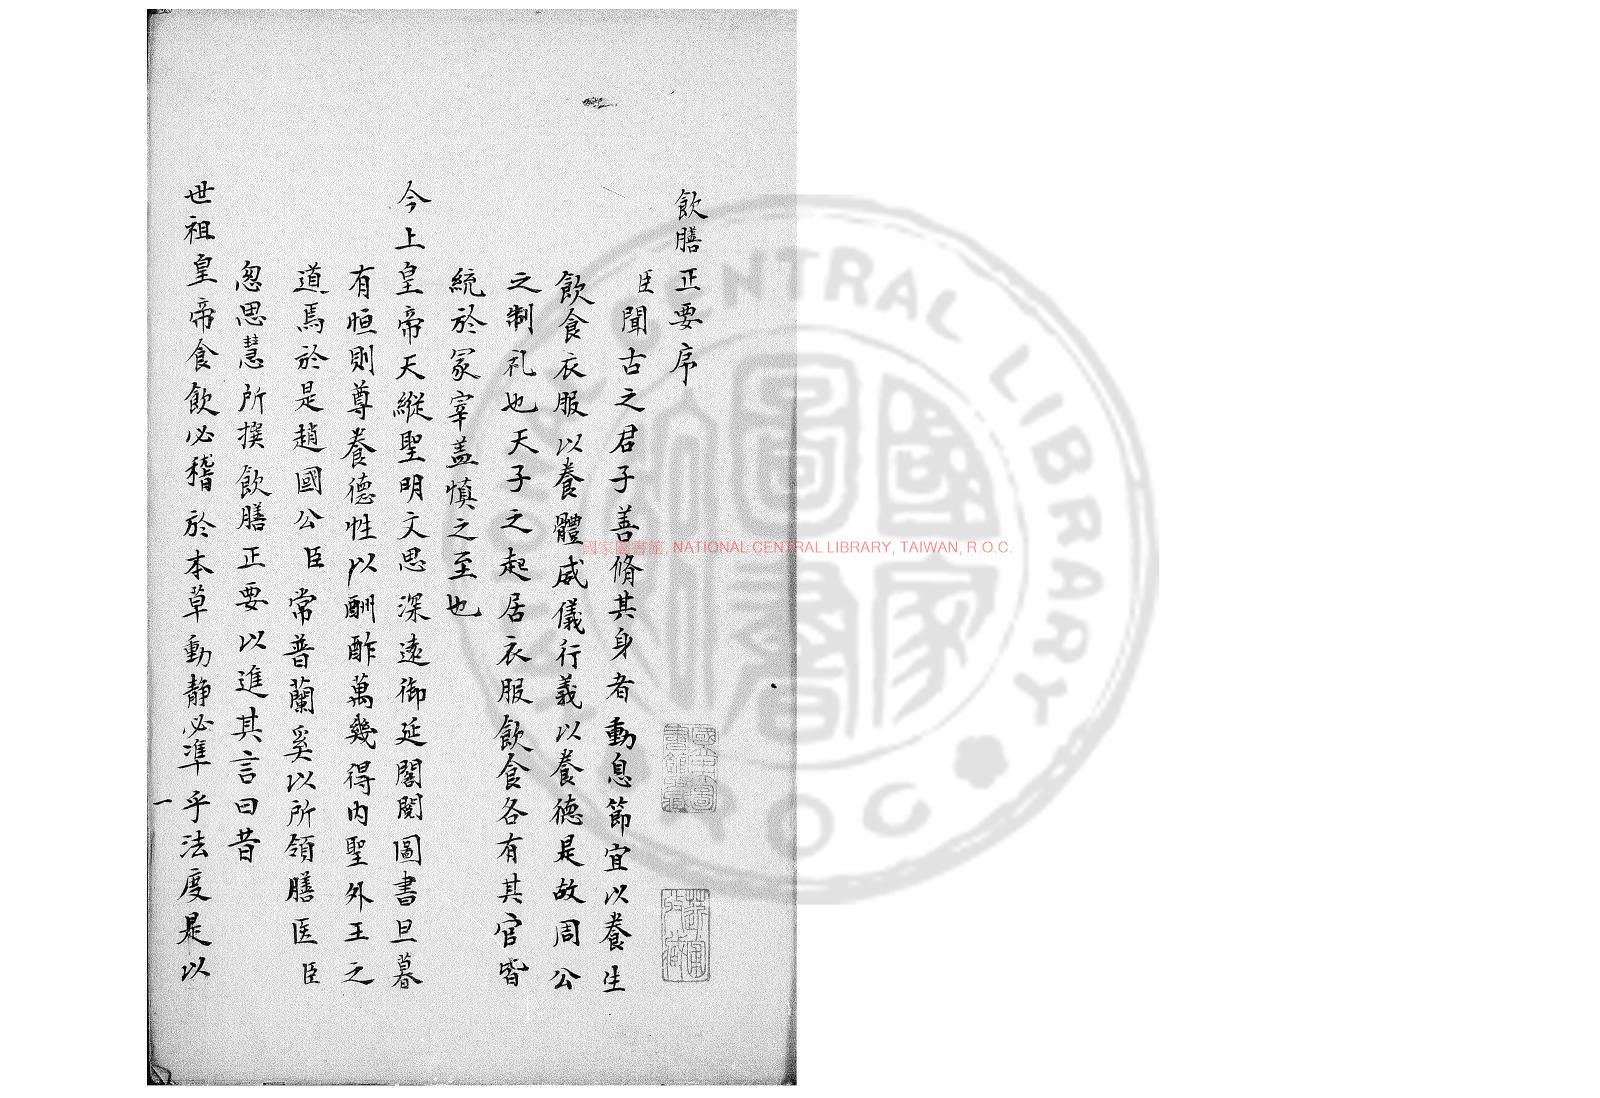 飲膳正要序
臣聞古之君子善脩其身者動息節宜以養生
飲食衣服以養體威儀行義以養德是故周公
之制礼也天子之起居衣服飲食各有其官皆
統於冢宰盖慎之至也
今上皇帝天縱聖明文思深遠御延閣閱圖書旦暮
有恒則尊養德性以酬酢萬幾得內聖外王之
道焉於是趙國公臣常普蘭奚以所領膳医臣
忽思慧所撰飲膳正要以進其言曰昔
世祖皇帝食飲必稽於本草動静必準乎法度是以
一
國家圖書館, NATIONAL CENTRAL LIBRARY, TAIWAN, R.O.C.
NATIONAL CENTRAL LIBRARY
R.O.C
國家圖書